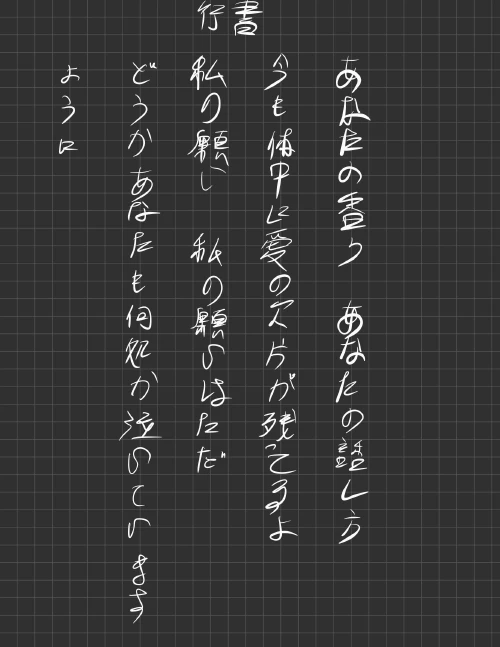 行書
あなたの香り　あなたの話し方
今も体中に愛の欠片が残ってるよ
私の願い　私の願いはただ
どうかあなたも何処か泣いています
ように